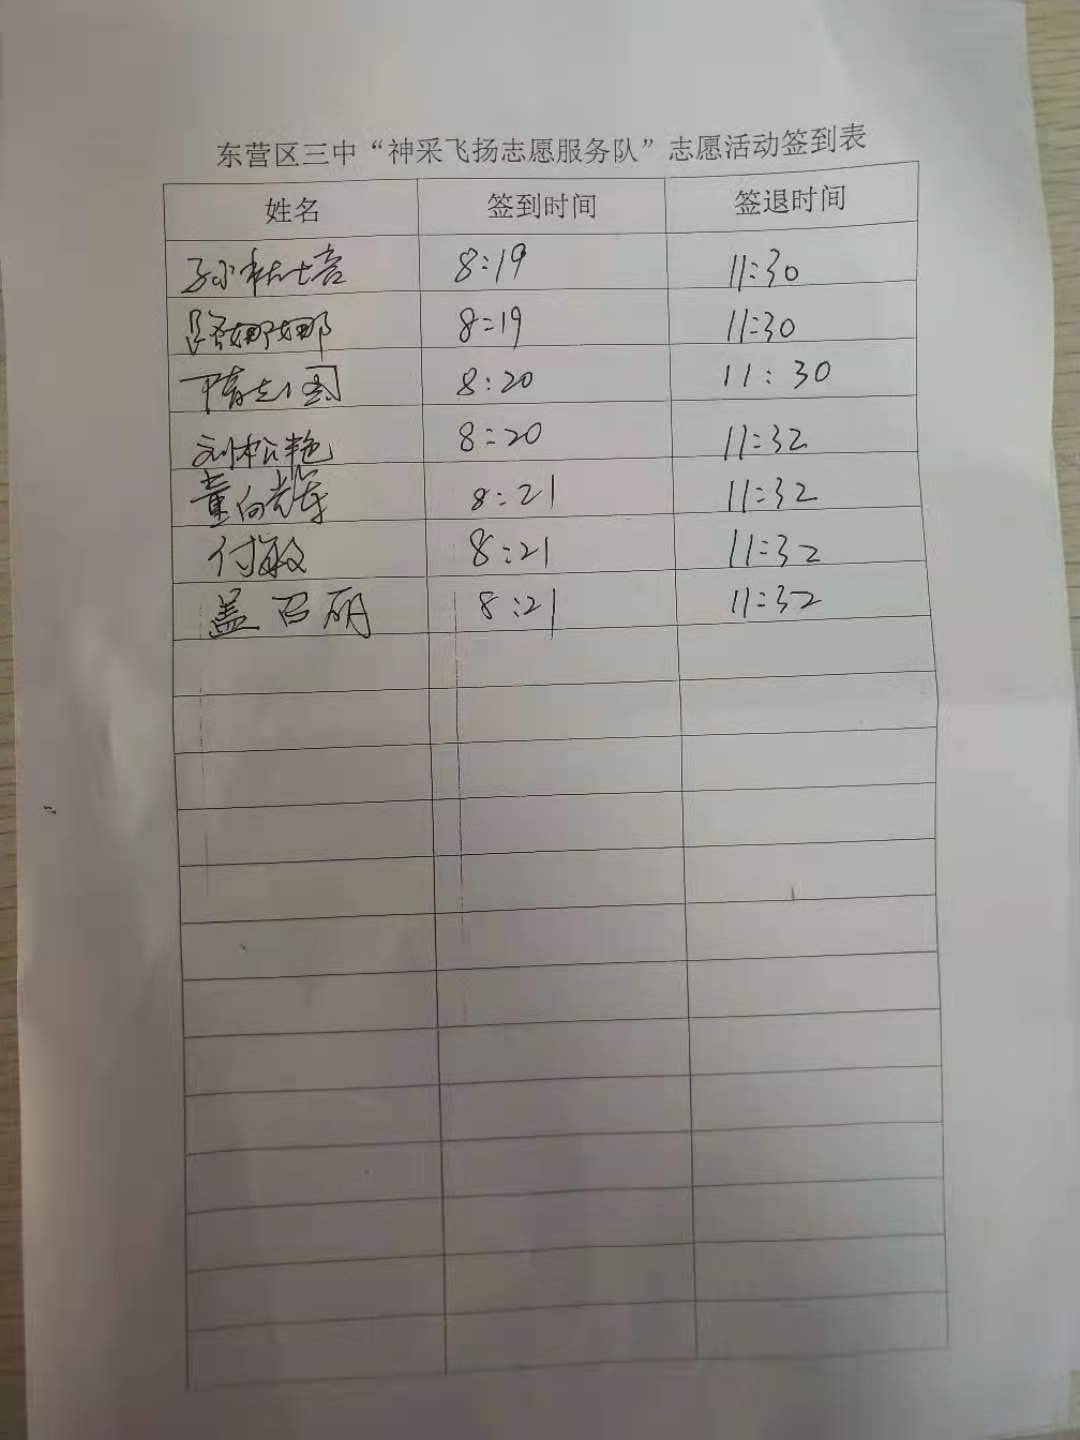 东营区三中“神采飞扬志愿服务队”志愿活动签到表
姓名 签到时间 签退时间
孙桂培 8:19 11:30
路娜娜 8:19 11:30
隋志国 8:20 11:30
刘松艳 8:20 11:32
董向辉 8:21 11:32
付敏 8:21 11:32
盖召朋 8:21 11:32